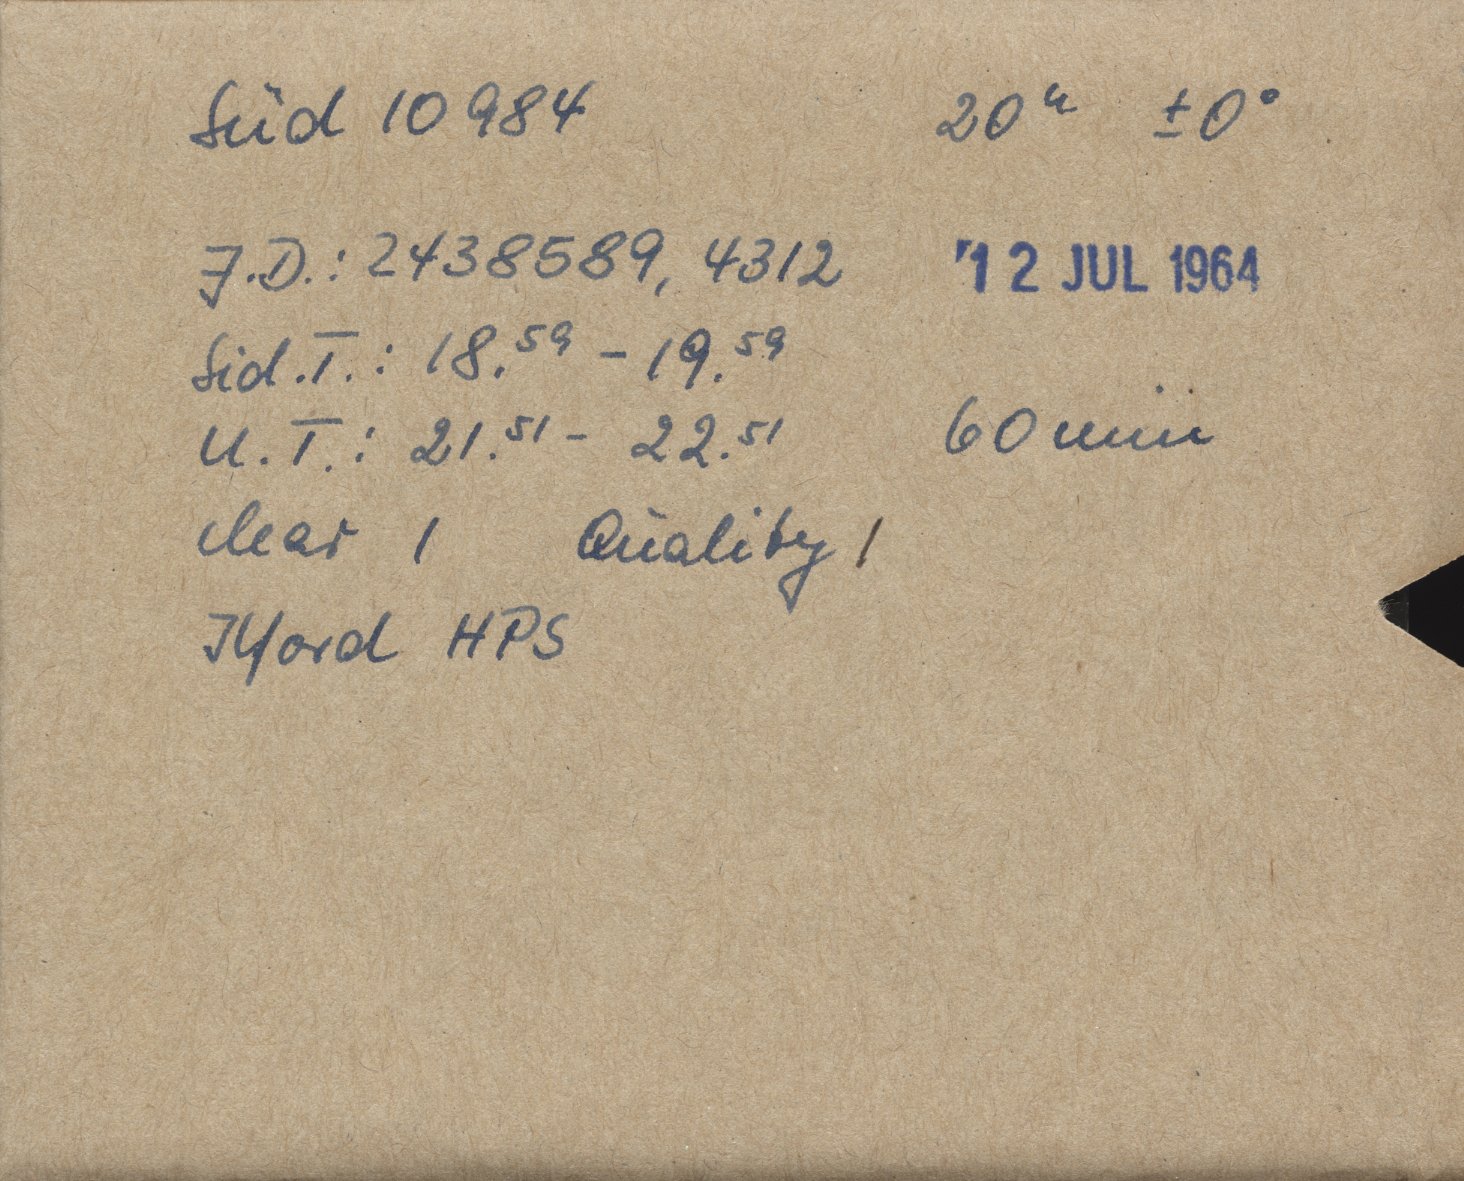 Süd 10984 20ʰ ±0°
J.D.: 2438589,4312 12 JUL 1964
Sid.T.: 18.⁵⁹ - 19.⁵⁹
U.T.: 21.⁵¹ - 22.⁵¹ 60 min
clear 1 Quality 1
Ilford HPS